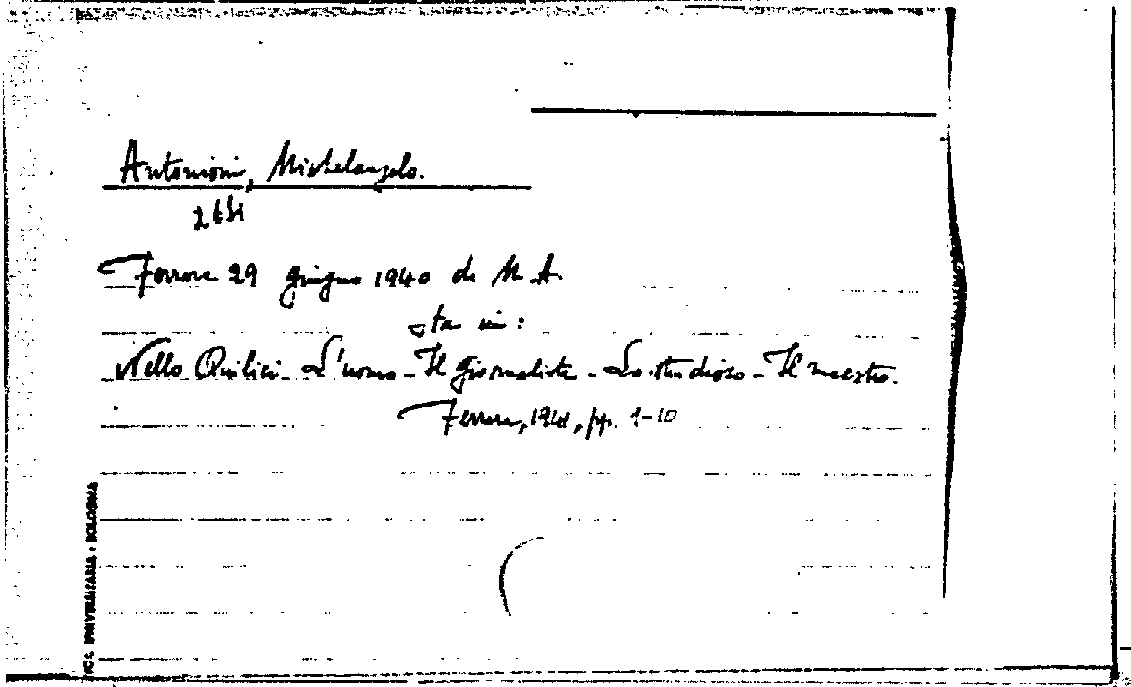 Antonioni, Michelangelo.
Ferrara 29 giugno 1940 di M. A.
sta in:
Nello Quilici - L'uomo - Il giornalista - Lo studioso - Il maestro.
Ferrara, 1941, pp. 1-10
SOC. UNIVERSITARIA - BOLOGNA